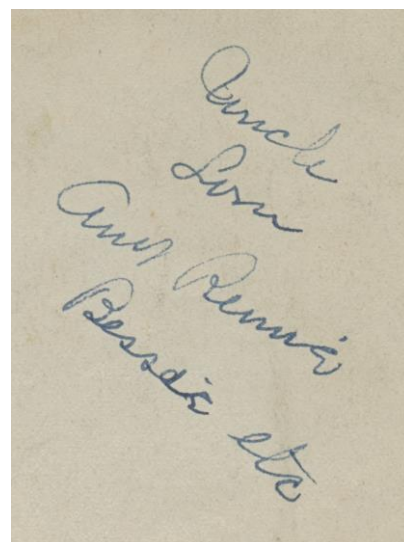 Uncle
Lom
Amy Rennie
Bessie etc